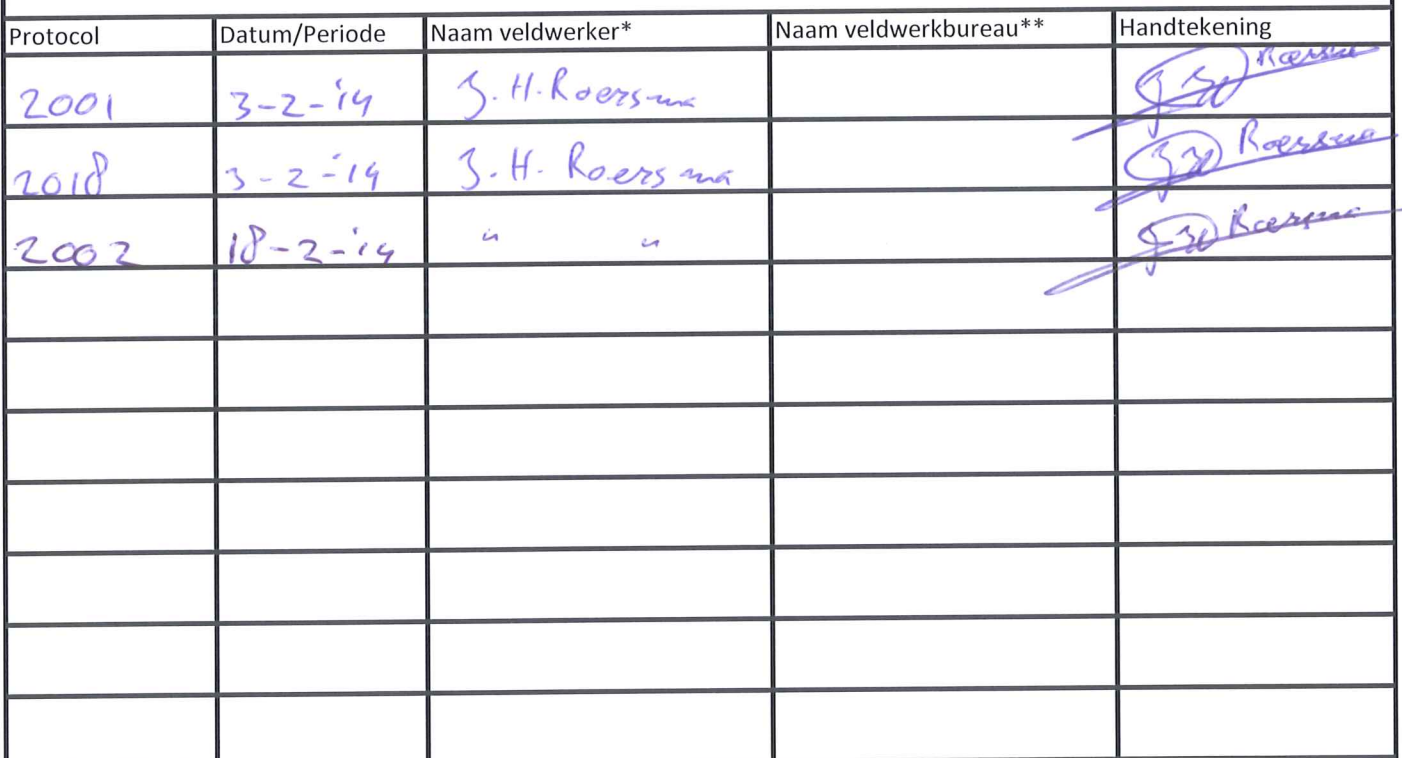 Protocol Datum/Periode Naam veldwerker* Naam veldwerkbureau** Handtekening
2001 3-2-'14 J.H. Roersma Roersma
2018 3-2-'14 J.H. Roersma Roersma
2002 18-2-'14 " " Roersma